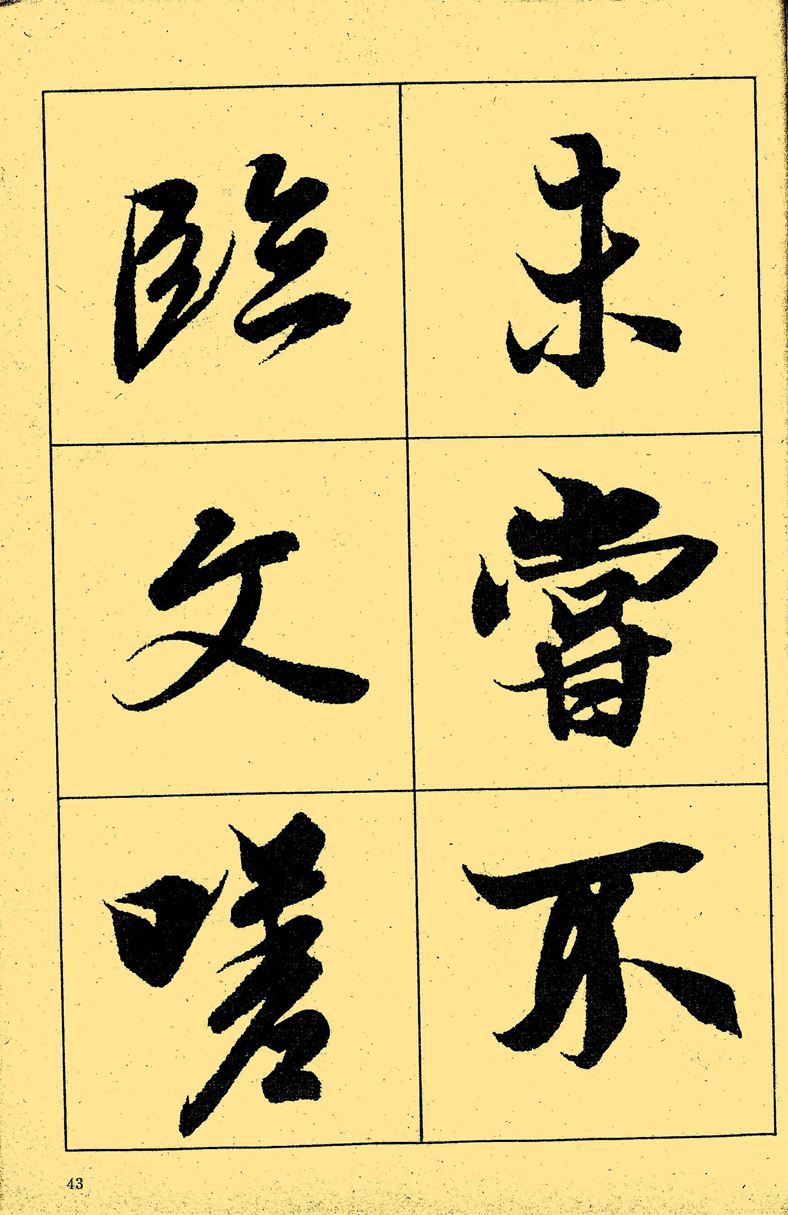 未嘗不
臨文嗟
43